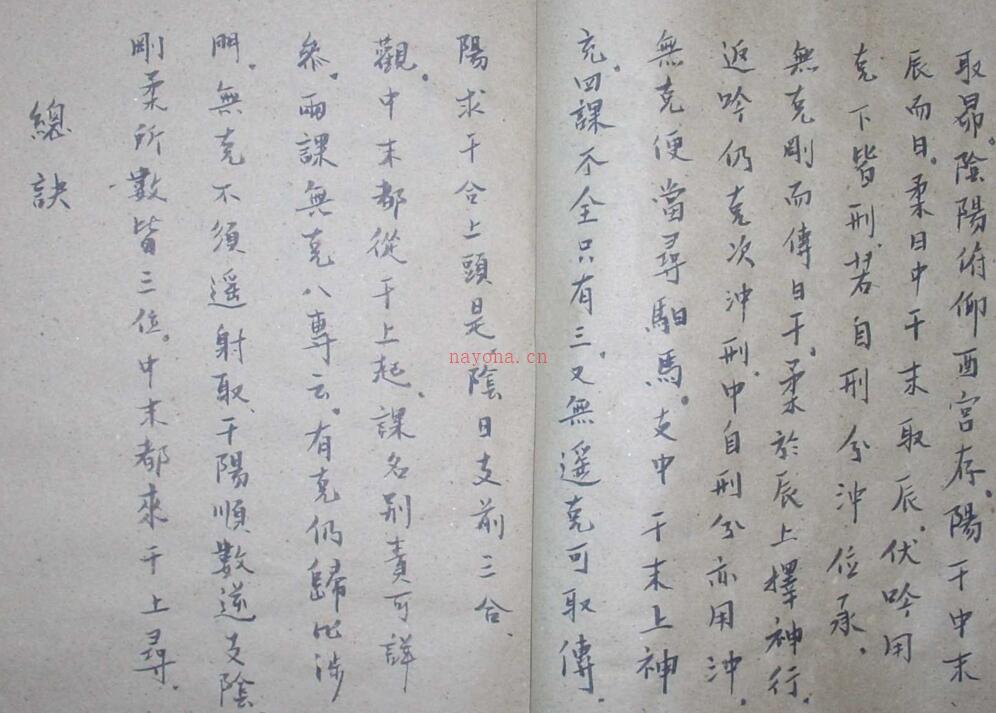 取昴。陰陽俯仰酉宮存。陽干中末
辰而日。柔日中干末取辰。伏吟用
克下皆刑。若自刑分沖位承。
無克剛而傳日干。柔於辰上擇神行。
返吟仍克次沖刑。中自刑分亦用沖。
無克便當尋馹馬。支中干末上神
充。四課不全只有三。又無遥克可取傳。
陽求干合上頭是。陰日支前三合、
觀。中末都從干上起。課名別責可詳
參。兩課無克八專云。有克仍歸比涉
門。無克不須遥射取、干陽順數逆支陰
剛柔所數皆三位。中末都來干上尋。
總訣
nayona.cn